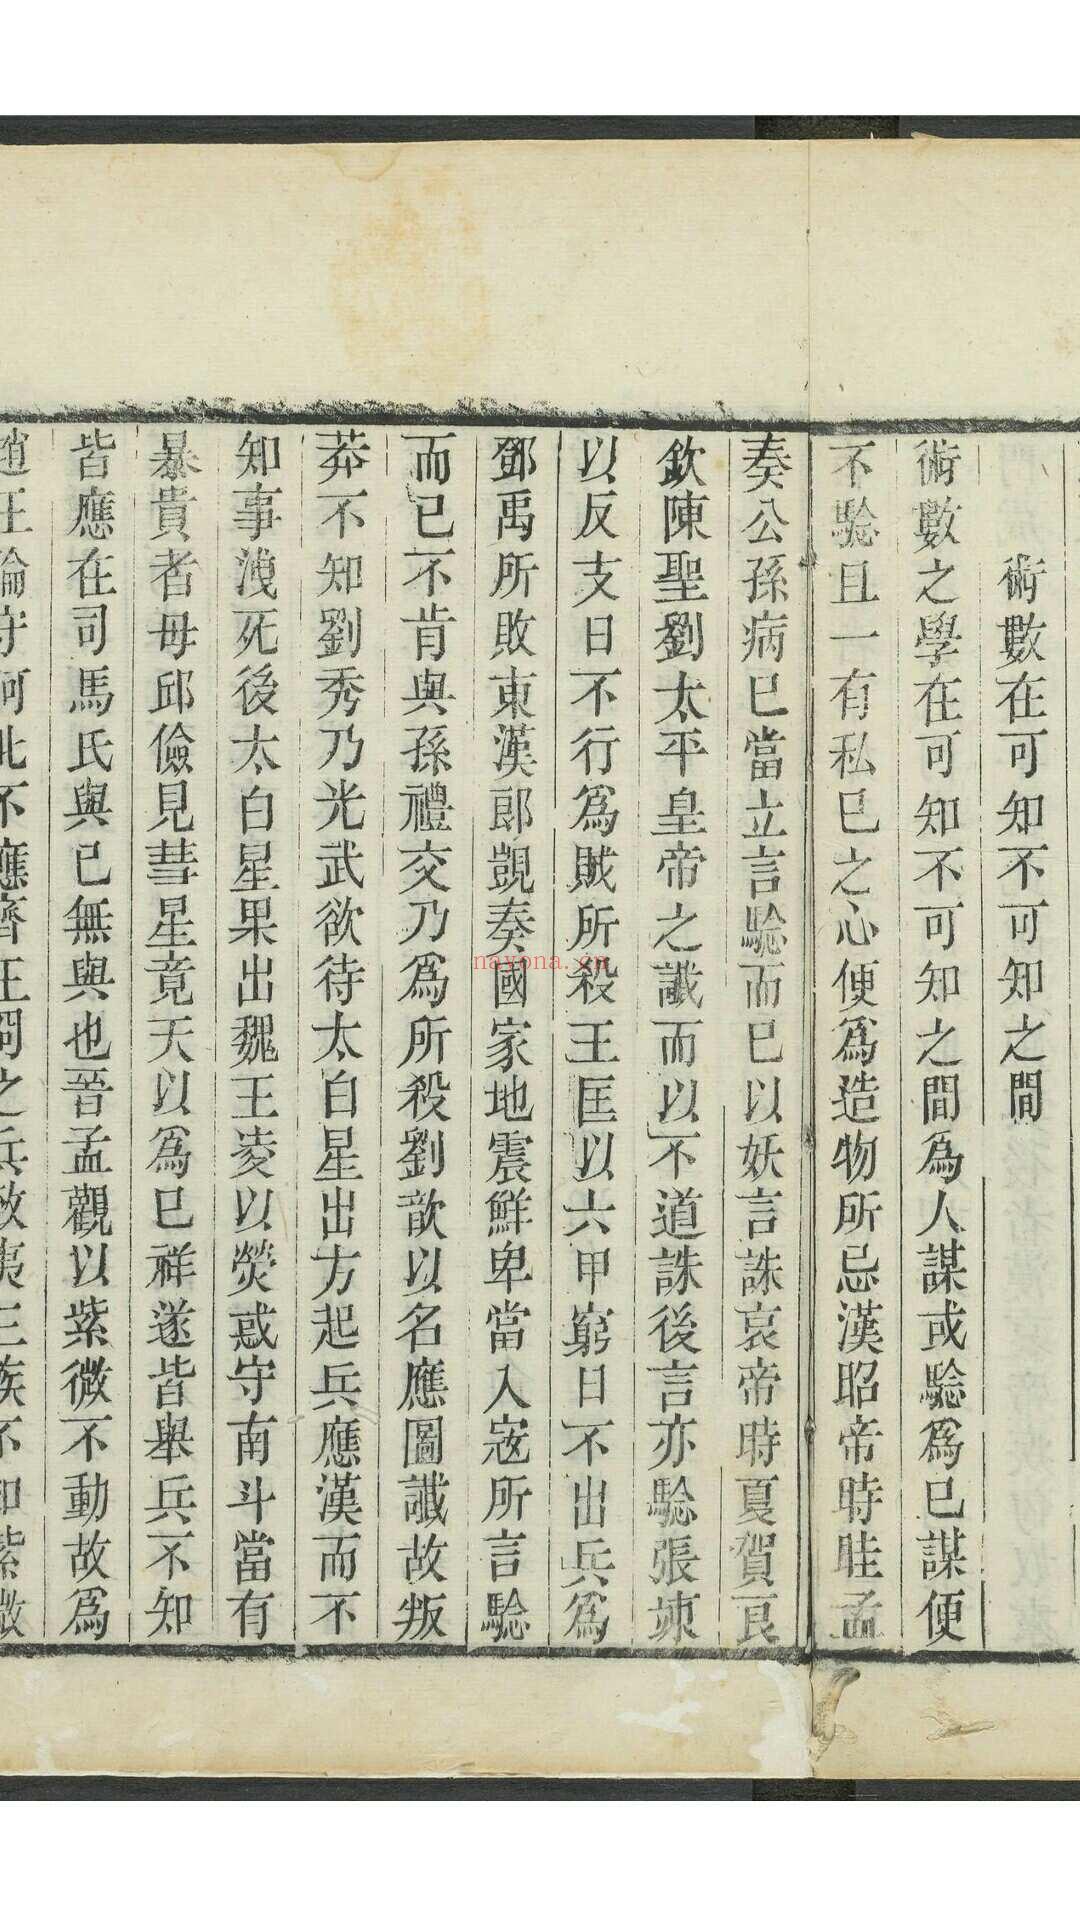 術數在可知不可知之間
術數之學在可知不可知之間為人謀或驗爲已謀便
不驗且一有私已之心便爲造物所忌漢昭帝時眭孟
奏公孫病已當立言驗而已以妖言誅哀帝時夏賀良
欽陳聖劉太平皇帝之讖而以不道誅後言亦驗張竦
以反支日不行爲賊所殺王匡以六甲窮日不出兵爲
鄧禹所敗東漢郎顗奏國家地震鮮卑當入寇所言驗
而已不肯與孫禮交乃爲所殺劉歆以名應圖讖故叛
莽不知劉秀乃光武欲待太白星出方起兵應漢而不
知事洩死後太白星果出魏王凌以熒惑守南斗當有
暴貴者毋邱儉見彗星竟天以爲已祥遂皆舉兵不知
皆應在司馬氏與已無與也晉孟觀以紫微不動故爲
趙王倫守河北不應齊王冏之兵故夷三族不知紫微
nayona.cn